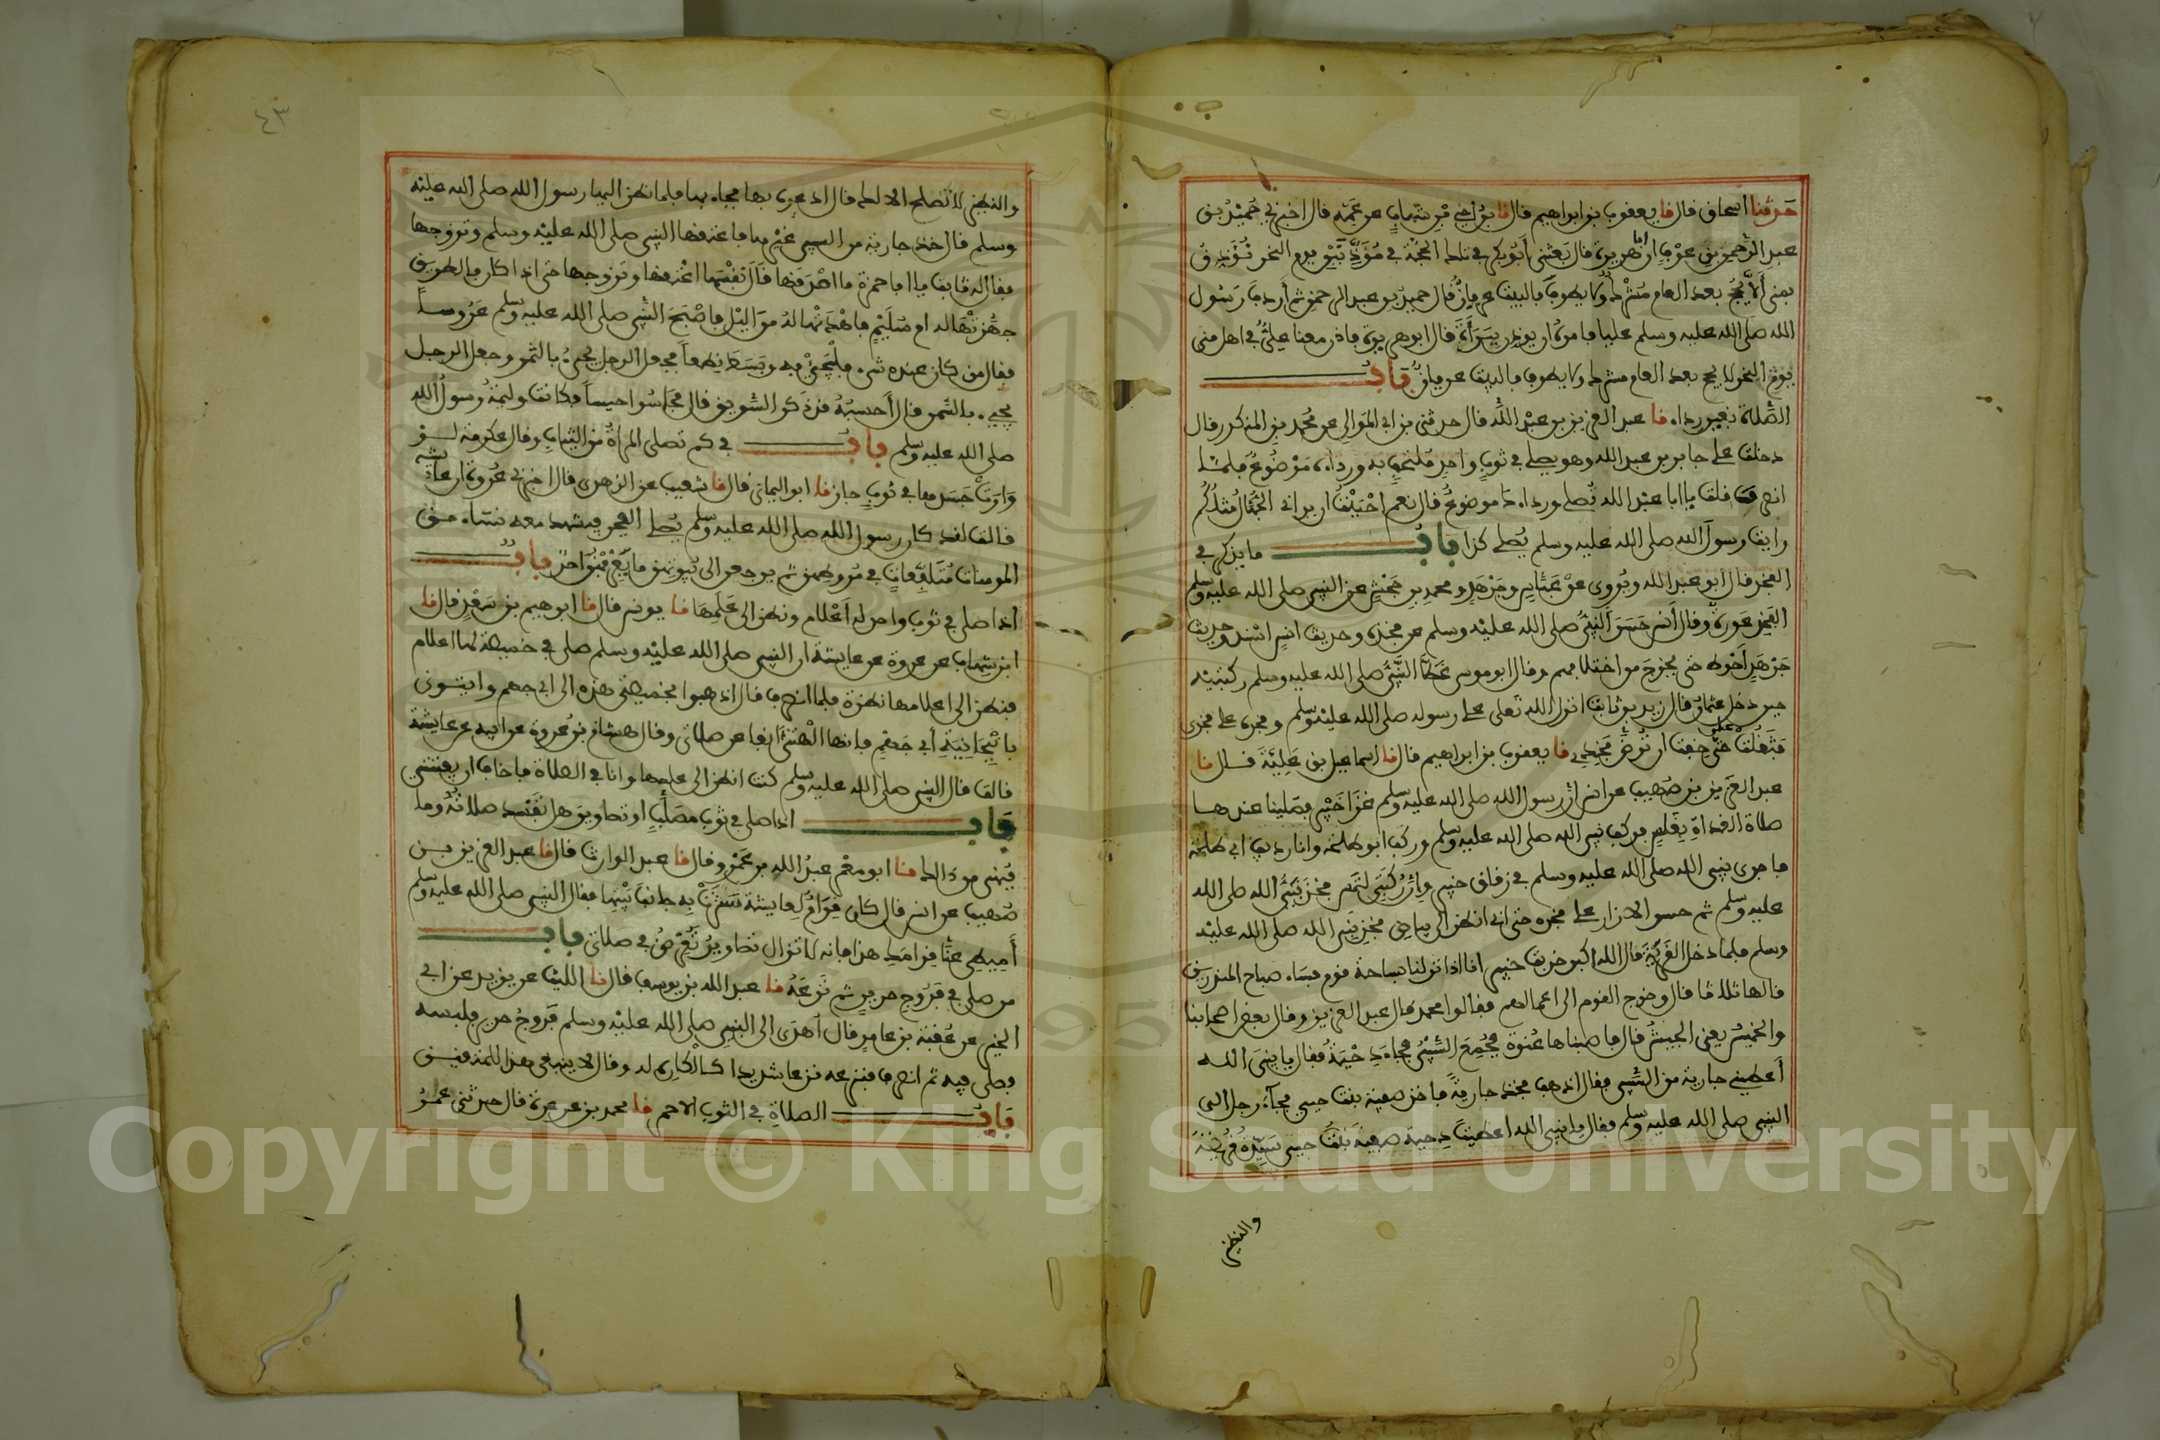 حدثنا اسحاق قال نا يعقوب بن ابراهيم قال نا بن اخي بن شهاب عن عمه قال اخبرني حميد بن
عبد الرحمن بن عوف ان ابا هريرة قال بعثني ابو بكر في تلك الحجة في مؤذنين يوم النحر نؤذن
بمنى ألا يحج بعد العام مشرك ولا يطوف بالبيت عريان قال حميد بن عبد الرحمن ثم أردف رسول
الله صلى الله عليه وسلم عليا فامره ان يوذن ببراءة قال ابو هريرة فاذن معنا علي في اهل منى
يوم النحر لا يحج بعد العام مشرك ولا يطوف بالبيت عريان باب
الصلاة بغير رداء نا عبد العزيز بن عبد الله قال حدثني بن ابي الموالي عن محمد بن المنكدر قال
دخلت على جابر بن عبد الله وهو يصلي في ثوب واحد ملتحف به ورداءه موضوع فلما
انصرف قلت يا ابا عبد الله تصلي ورداءك موضوع قال نعم احببت ان يراني الجهال مثلكم
رايت رسول الله صلى الله عليه وسلم يصلي كذا باب ما يذكر في
الفخذ قال ابو عبد الله ويروى عن بن عباس وجرهد ومحمد بن جحش عن النبي صلى الله عليه وسلم
الفخذ عورة وقال أنس حسر النبي صلى الله عليه وسلم عن فخذه وحديث انس اسند وحديث
جرهد أحوط حتى يخرج من اختلافهم وقال ابو موسى غطا النبي صلى الله عليه وسلم ركبتيه
حين دخل عثمان وقال زيد بن ثابت انزل الله تعلى على رسوله صلى الله عليه وسلم وفخذه على فخذي
فثقلت علي حتى خفت ان ترض فخذي نا يعقوب بن ابراهيم قال نا اسماعيل بن علية قال نا
عبد العزيز بن صهيب عن انس ان رسول الله صلى الله عليه وسلم غزا خيبر فصلينا عندها
صلاة الغداة بغلس فركب نبي الله صلى الله عليه وسلم وركب ابو طلحة وانا رديف ابي طلحة
فاجرى نبي الله صلى الله عليه وسلم في زقاق خيبر وان ركبتي لتمس فخذ نبي الله صلى الله
عليه وسلم ثم حسر الازار على فخذه حتى اني انظر الى بياض فخذ نبي الله صلى الله عليه
وسلم فلما دخل القرية قال الله اكبر خربت خيبر انا اذا نزلنا بساحة قوم فساء صباح المنذرين
قالها ثلاثا قال وخرج القوم الى اعمالهم فقالوا محمد قال عبد العزيز وقال بعض اصحابنا
والخميس يعني الجيش قال فاصبناها عنوة فجمع السبي فجاء دحية فقال يا نبي الله
أعطني جارية من السبي فقال اذهب فخذ جارية فاخذ صفية بنت حيي فجاء رجل الى
النبي صلى الله عليه وسلم فقال يا نبي الله اعطيت دحية صفية بنت حيي سيدة قريظة
والنضير
٤٣
والنضير لا تصلح الا لك قال ادعوه بها فجاء بها فلما نظر اليها رسول الله صلى الله عليه
وسلم قال خذ جارية من السبي غيرها فاعتقها النبي صلى الله عليه وسلم وتزوجها
فقال له ثابت يا ابا حمزة ما اصدقها قال نفسها اعتقها وتزوجها حتى اذا كان بالطريق
جهزتها له ام سليم فاهدتها له من الليل فاصبح النبي صلى الله عليه وسلم عروسا
فقال من كان عنده شيء فليجئ به وبسط نطعا فجعل الرجل يجيء بالتمر وجعل الرجل
يجيء بالسمن قال أحسبه قد ذكر السويق قال فحاسوا حيسا فكانت وليمة رسول الله
صلى الله عليه وسلم باب في كم تصلي المراة من الثياب وقال عكرمة لو
وارت جسدها في ثوب جاز نا ابو اليمان قال نا شعيب عن الزهري قال اخبرني عروة ان عائشة
قالت لقد كان رسول الله صلى الله عليه وسلم يصلي الفجر فيشهد معه نساء من
المومنات متلفعات في مروطهن ثم يرجعن الى بيوتهن ما يعرفهن احد باب
اذا صلى في ثوب واحد له أعلام ونظر الى علمها نا يونس قال نا ابراهيم بن سعد قال نا
ابن شهاب عن عروة عن عايشة ان النبي صلى الله عليه وسلم صلى في خميصة لها اعلام
فنظر الى اعلامها نظرة فلما انصرف قال اذهبوا بخميصتي هذه الى ابي جهم وايتوني
بانبجانية أبي جهم فانها الهتني آنفا عن صلاتي وقال هشام بن عروة عن ابيه عن عايشة
قالت قال النبي صلى الله عليه وسلم كنت انظر الى علمها وانا في الصلاة فاخاف ان يفتنني
باب اذا صلى في ثوب مصلب او تصاوير هل تفسد صلاته وما
ينهى من ذالك نا ابو معمر عبد الله بن عمرو قال نا عبد الوارث قال نا عبد العزيز بن
صهيب عن انس قال كان قرام لعايشة سترت به جانب بيتها فقال النبي صلى الله عليه وسلم
أميطي عنا قرامك هذا فانه لا تزال تصاوير تعرض في صلاتي باب
من صلى في فروج حرير ثم نزعه نا عبد الله بن يوسف قال نا الليث عن يزيد عن ابي
الخير عن عقبة بن عامر قال أهدى الى النبي صلى الله عليه وسلم فروج حرير فلبسه
وصلى فيه ثم انصرف فنزعه نزعا شديدا كالكاره له وقال لا ينبغي هذا للمتقين
باب الصلاة في الثوب الاحمر نا محمد بن عرعرة قال حدثني عمر
Copyright © King Saud University